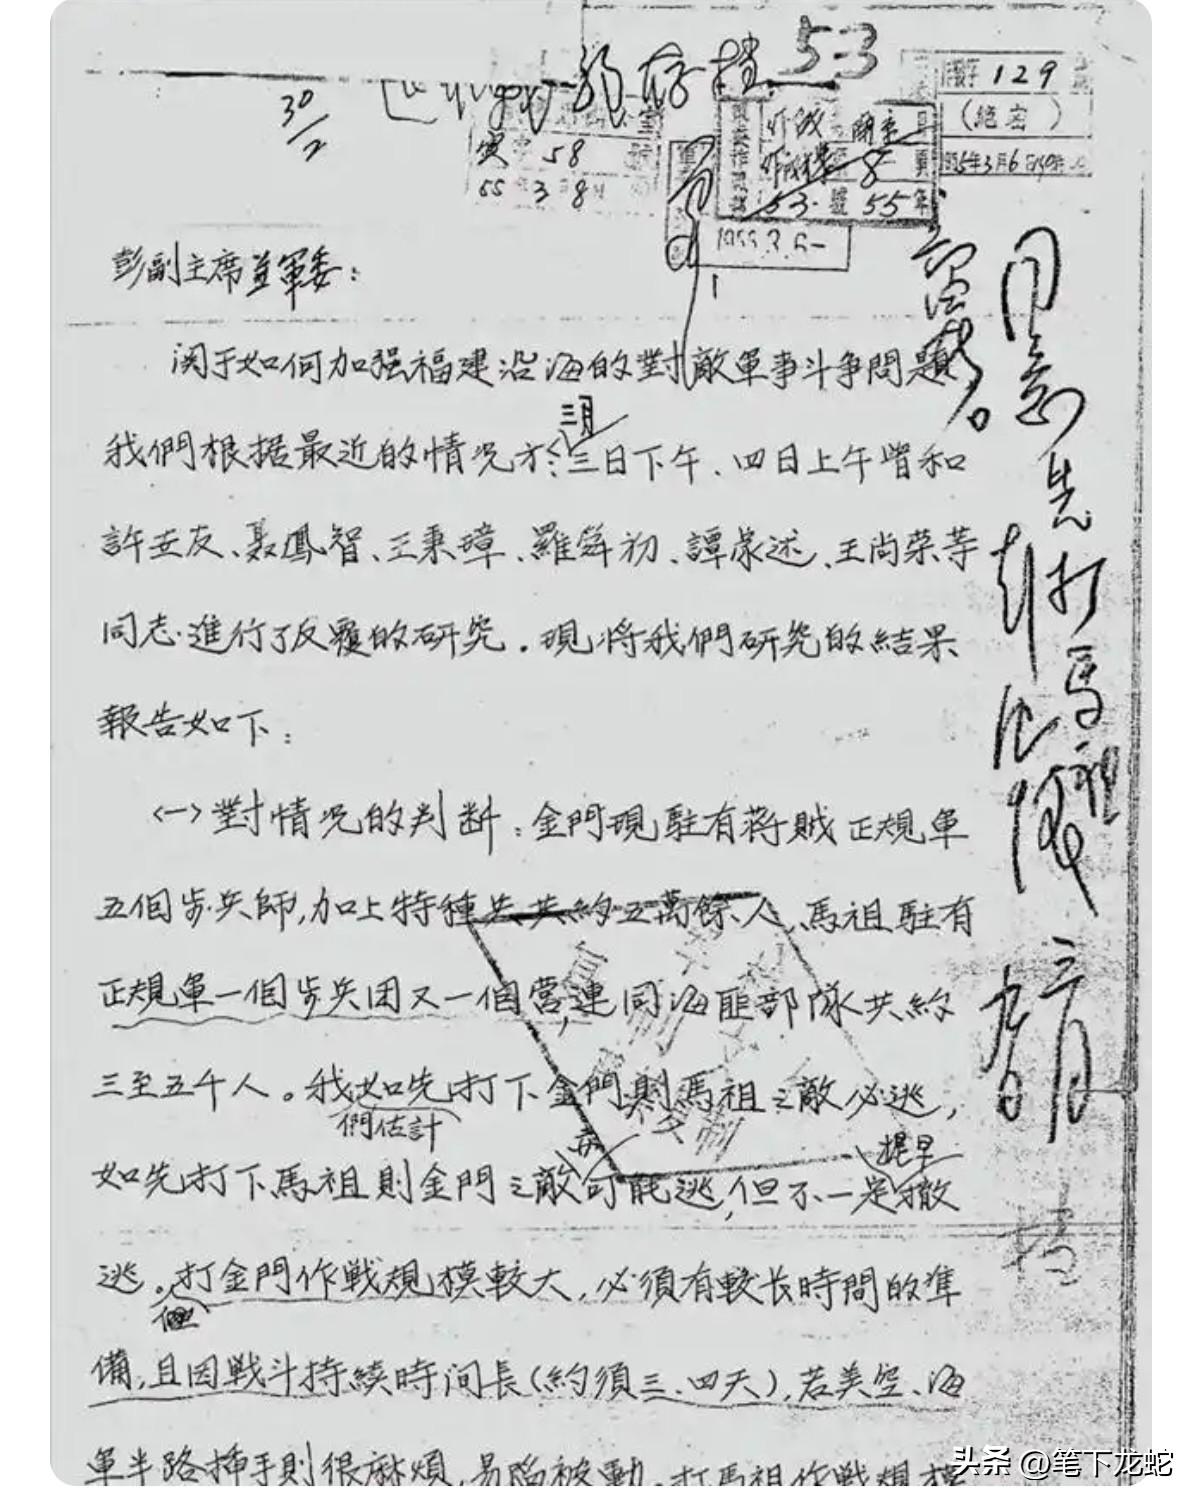 存档
53
30/2
58
55 3 8
129
(絕密)
55年3月6日
炸战
8
53 號 55年
1955.3.6-
彭副主席並軍委：
关于如何加强福建沿海的對敵軍事斗争問題
三月
我們根据最近的情况於三日下午、四日上午曾和
許世友、聂鳳智、王秉璋、羅舜初、譚家述、王尚荣等
同志進行了反覆的研究。現将我們研究的結果
報告如下：
(一)對情况的判断：金門現駐有蒋賊正規軍
五個步兵師，加上特種兵共約五萬餘人、馬祖駐有
正規軍一個步兵团又一個營，連同海匪部隊共約
三至五千人。我如先打下金門則馬祖之敵必逃，
們估計
提早
如先打下馬祖則金門之敵可能逃，但不一定撤
逃。打金門作戦規模較大，必須有較长時間的準
備，且因戦斗持續時间長(約須三、四天)，若美空、海
軍半路揷手則很麻煩，易陷被動。打馬祖作戦規模
同意先打馬祖
彭德懷
三月
头条 @笔下龙蛇